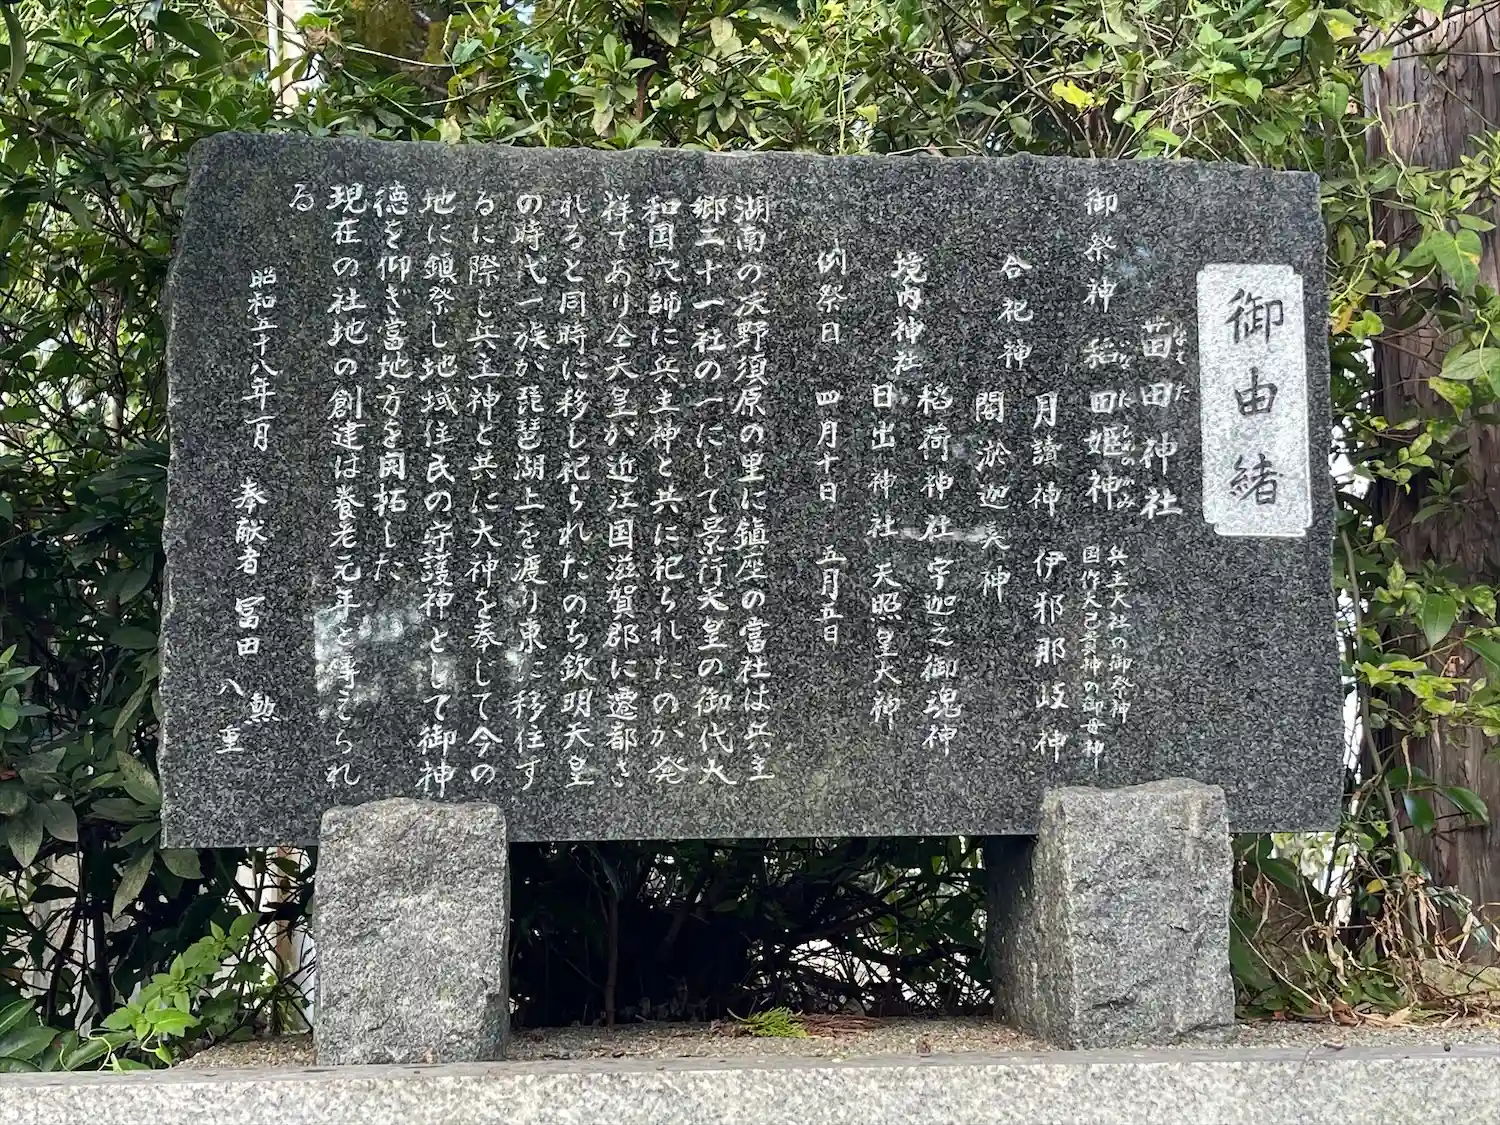 御由緒
苗田神社
なえた
御祭神 稻田姫神 兵主大社の御祭神
国作大己貴神の御母神
いなだひめのかみ
月讀神 伊邪那岐神
合祀神 闇淤迦美神
稻荷神社 宇迦之御魂神
境内神社 日出神社 天照皇大神
例祭日 四月十日 五月五日
湖南の茨野須原の里に鎮座の當社は兵主
郷二十一社の一にして景行天皇の御代大
和国穴師に兵主神と共に祀られたのが発
祥であり仝天皇が近江国滋賀郡に遷都さ
れると同時に移し祀られたのち欽明天皇
の時代一族が琵琶湖上を渡り東に移住す
るに際し兵主神と共に大神を奉じて今の
地に鎮祭し地域住民の守護神として御神
徳を仰ぎ當地方を開拓した
現在の社地の創建は養老元年と傳えられ
る
昭和五十八年一月 奉献者 冨田 勲
八重